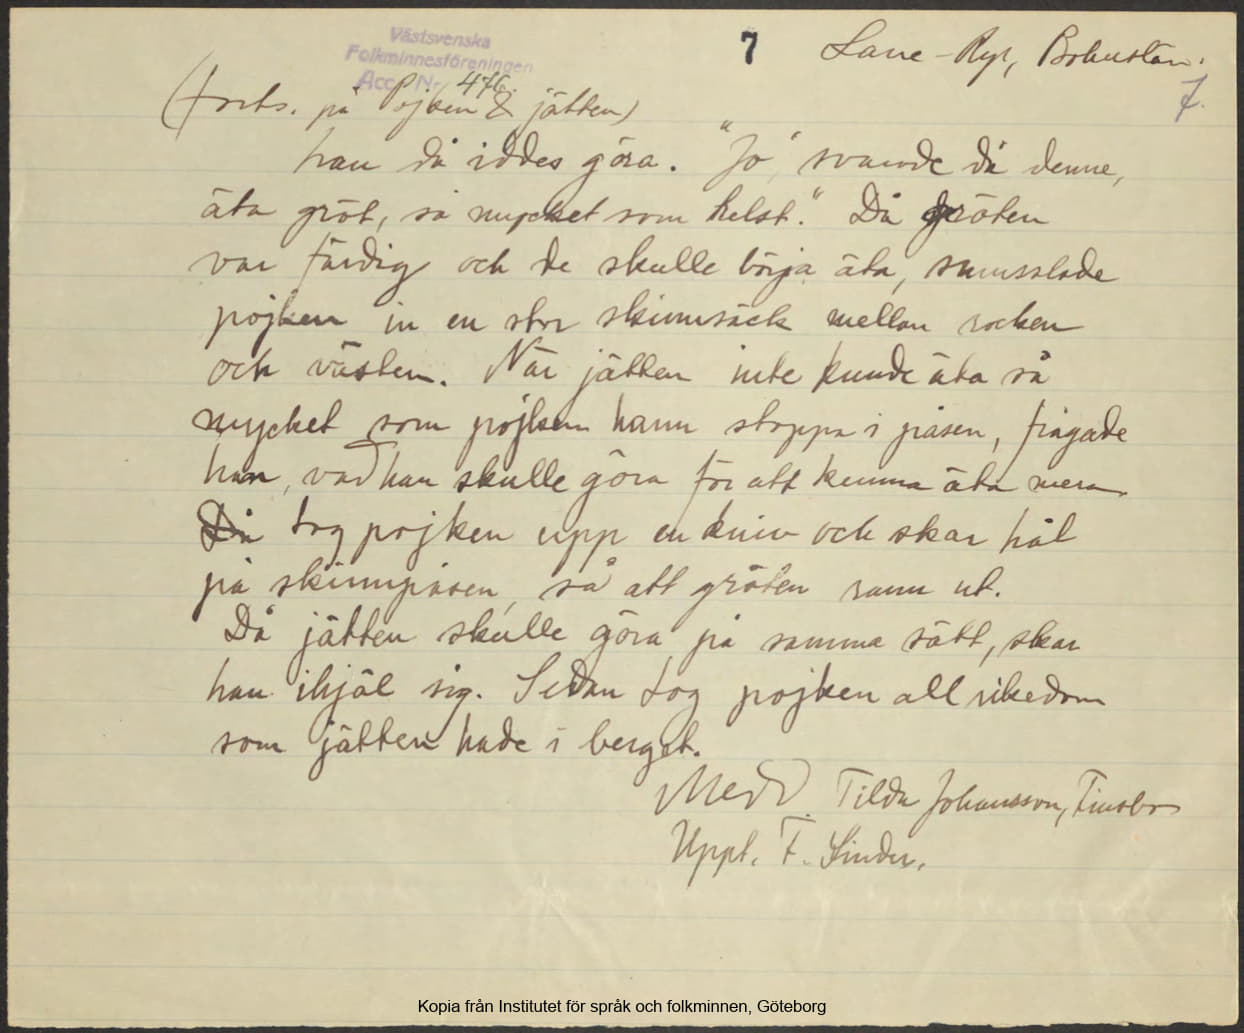 Västsvenska
Folkminnesföreningen
Acc. Nr. 476.
7
Lane-Ryr, Bohuslän.
7.
(forts. på Pojken & jätten)
han då iddes göra. "Jo", svarade då denne,
äta gröt, så mycket som helst." Då gröten
var färdig och de skulle börja äta, smusslade
pojken in en stor skinnsäck mellan rocken
och västen. När jätten inte kunde äta så
mycket som pojken hann stoppa i påsen, frågade
han, vad han skulle göra för att kunna äta mera.
Då tog pojken upp en kniv och skar hål
på skinnpåsen, så att gröten rann ut.
Då jätten skulle göra på samma sätt, skar
han ihjäl sig. Sedan tog pojken all rikedom
som jätten hade i berget.
Medd. Tilda Johansson,
Uppt. F. Linder.
Kopia från Institutet för språk och folkminnen, Göteborg